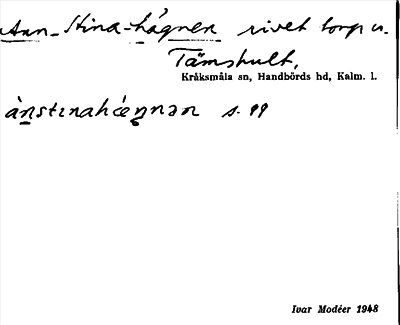 Ann-Stina-hägnen rivet torp u.
Tämshult,
Kråksmåla sn, Handbörds hd, Kalm. l.
ànstɩnahǽŋnən s. 99
Ivar Modéer 1948